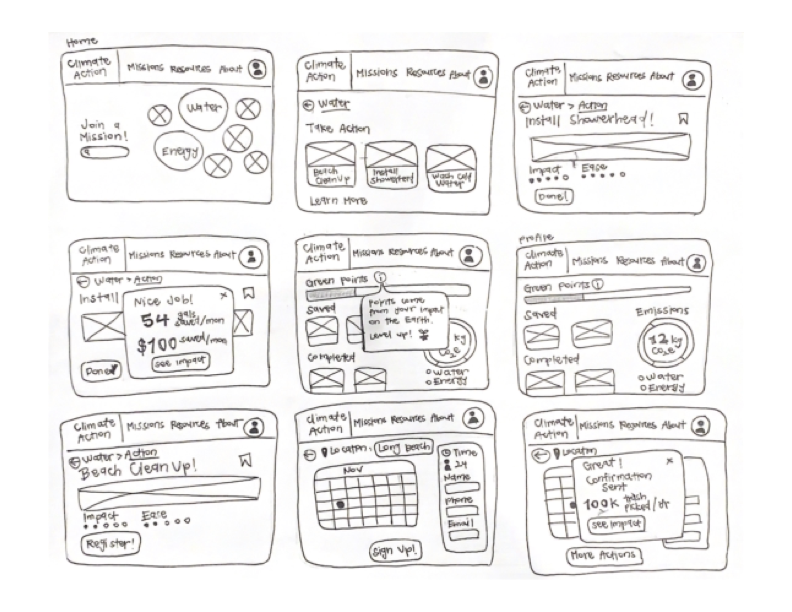 Home
Climate Action
Missions Resources About
Join a Mission!
Water
Energy
Climate Action
Missions Resources About
Water
Take Action
Beach CleanUp
Install Showerhead
Wash Cold Water
Learn More
Climate Action
Missions Resources About
Water > Action
Install Showerhead!
Impact Ease
Done!
Climate Action
Missions Resources About
Water > Action
Install
Nice Job! x
54 gals saved/mon
$100 saved/mon
See impact
Done
Climate Action
Missions Resources About
Green Points i
Points come from your impact on the Earth.
Level up!
Saved
kg
CO2e
Completed
Water
Energy
Profile
Climate Action
Missions Resources About
Green Points i
Saved
Emissions
kg
CO2e
Completed
Water
Energy
Climate Action
Missions Resources About
Water > Action
Beach CleanUp!
Impact Ease
Register!
Climate Action
Missions Resources About
Location: Long Beach
Nov
Time
24
Name
Phone
Email
Sign Up!
Climate Action
Missions Resources About
Location
Great! x
Confirmation Sent
100K trash picked/yr
See impact
More Actions